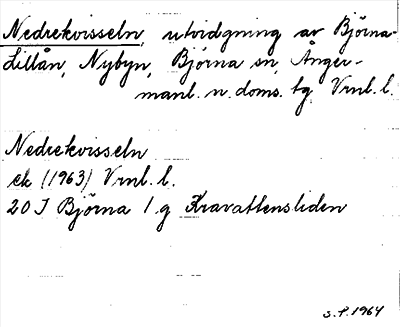 Nedrekvisseln, utvidgning av Björna-
Lillån, Nybyn, Björna sn, Ånger-
manl. n. doms. tg. Vrnl. l.
Nedrekvisseln
ek (1963) Vrnl. l.
20 J Björna 1.g Kravattensliden
S.P. 1964